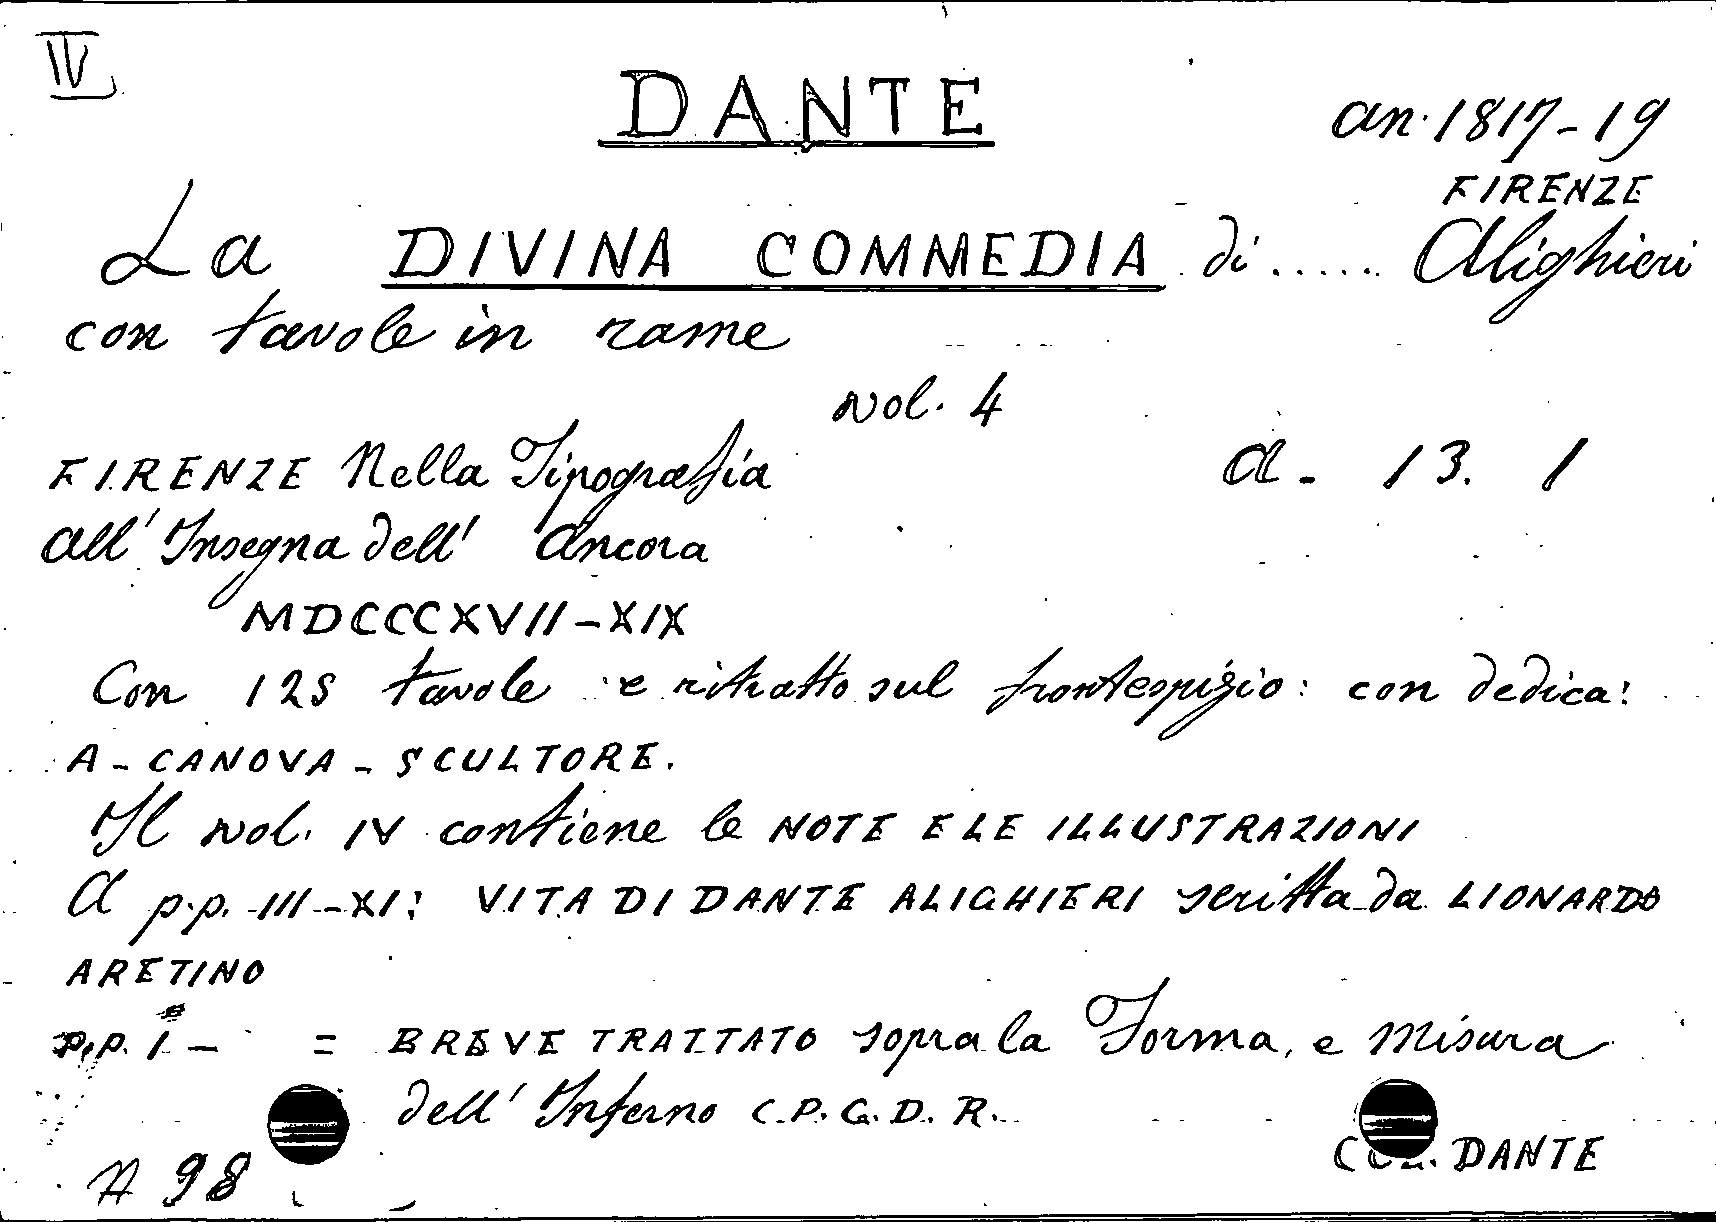 IV
DANTE
an. 1817-19
FIRENZE
La DIVINA COMMEDIA di ..... Alighieri
con tavole in rame
vol. 4
FIRENZE Nella Tipografia
a - 13. 1
all' Insegna dell' Ancora
MDCCCXVII-XIX
Con 125 tavole e ritratto sul frontespizio: con dedica:
A - CANOVA - SCULTORE.
Il vol. IV contiene le NOTE E LE ILLUSTRAZIONI
A p.p. III-XI: VITA DI DANTE ALIGHIERI scritta da LIONARDO
ARETINO
p.p. 1 - = BREVE TRATTATO sopra la Forma, e Misura
dell' Inferno C.P.G.D.R.
DANTE
A 98